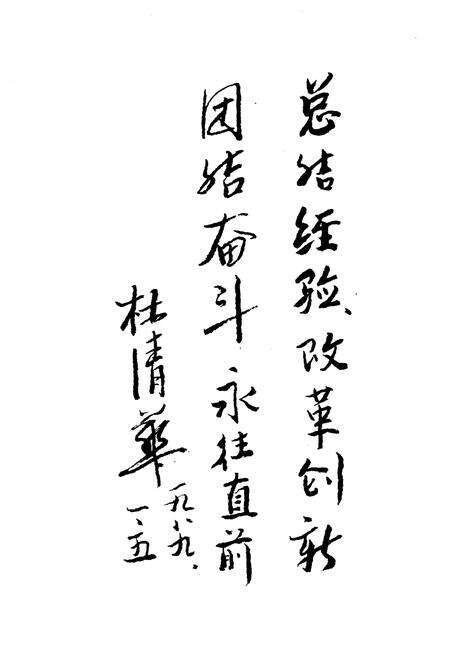 总结经验、改革创新
团结奋斗永往直前
杜清华
一九八九.
一、五